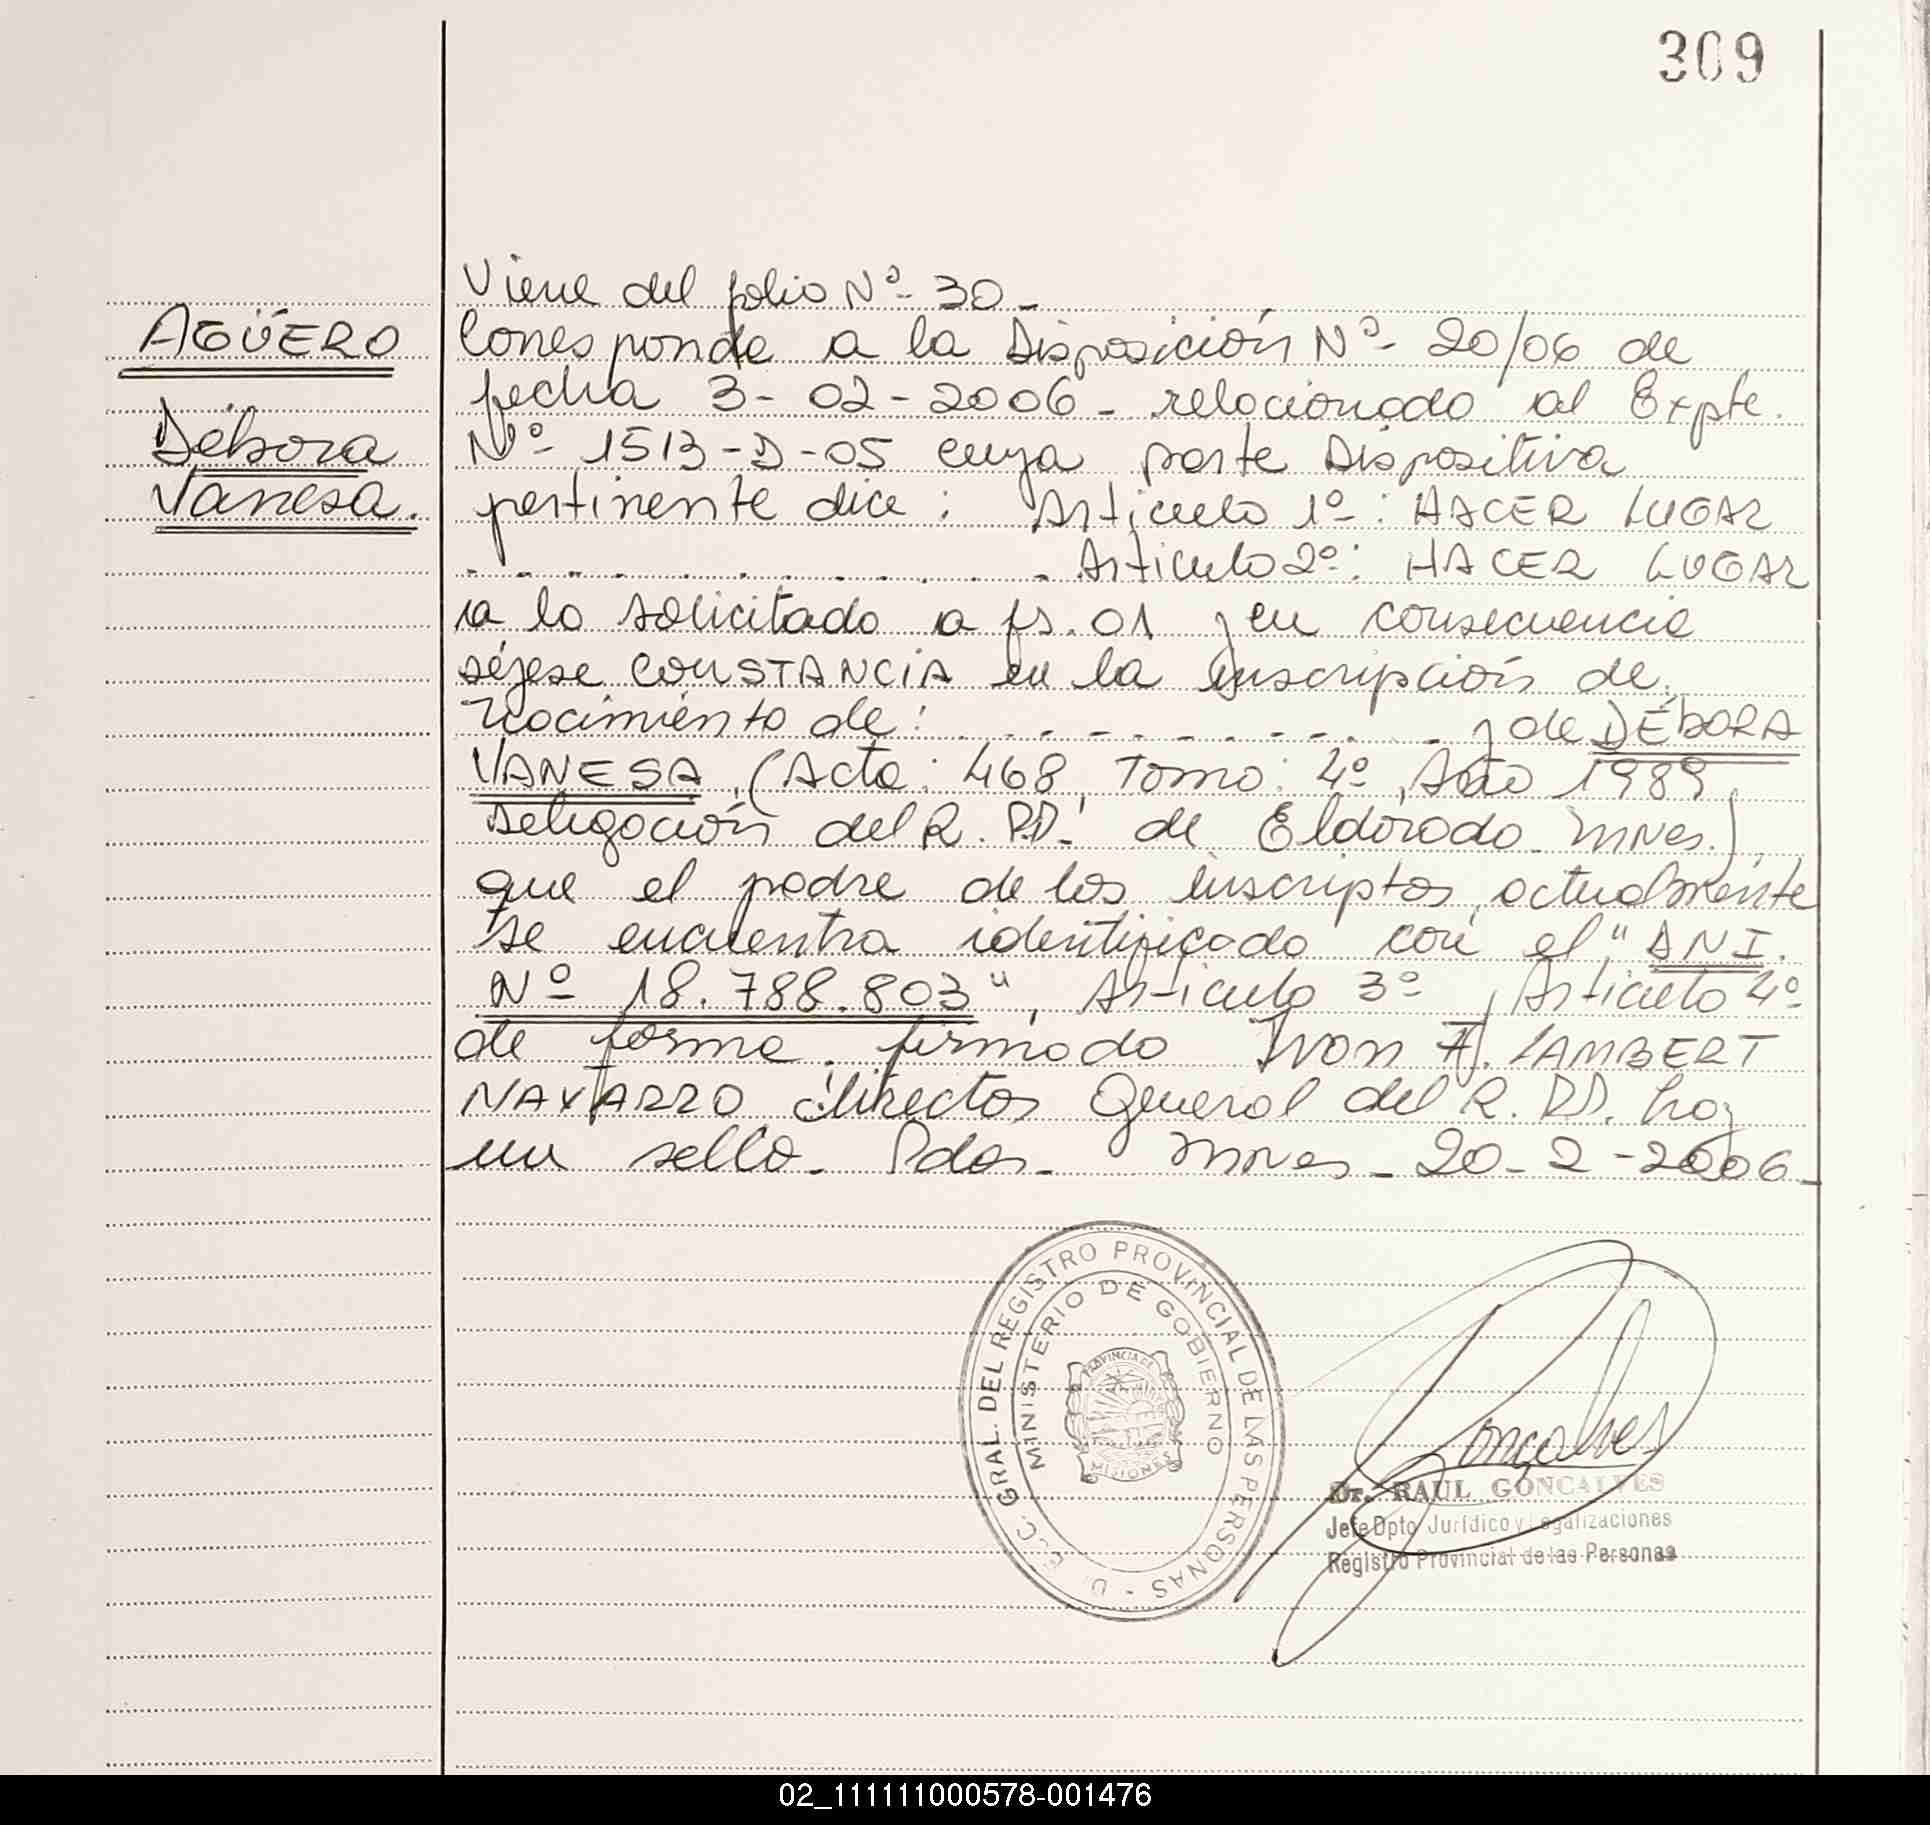 309
AGÜERO
Débora
Vanesa.
Viene del folio Nº- 30-
Corresponde a la Disposición Nº- 20/06 de
fecha 3-02-2006- relacionado al Expte.
Nº- 1513-D-05 cuya parte Dispositiva
pertinente dice: Artículo 1º: HACER LUGAR
. . . . . . . . . . . . Artículo 2º: HACER LUGAR
a lo solicitado a fs. 01 y en consecuencia
déjese CONSTANCIA en la inscripción de
nacimiento de: . . . . . . . . . . . y de DÉBORA
VANESA, (Acta: 468, Tomo: 4º, Año 1989,
Delegación del R. PP. de Eldorado Mnes.),
que el padre de los inscriptos, actualmente
se encuentra identificado con el "DNI.
Nº 18.788.803", Artículo 3º, Artículo 4º
de forma. firmado Ivan A. LAMBERT
NAVARRO Director General del R. PP. hay
un sello. Pdas- Mnes- 20-2-2006-
GRAL. DEL REGISTRO PROVINCIAL DE LAS PERSONAS -
MINISTERIO DE GOBIERNO
PROVINCIA DE
MISIONES
Gonçalves
Dr. RAUL GONCALVES
Jefe Dpto Jurídico y Legalizaciones
Registro Provincial de las Personas
02_111111000578-001476